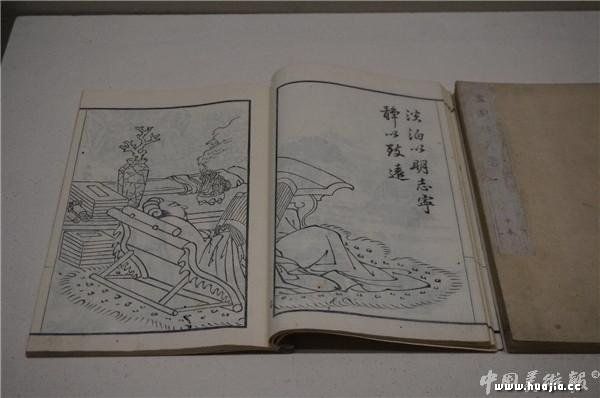 淡泊以明志寧
靜以致遠
中国美術報
www.huajia.cc